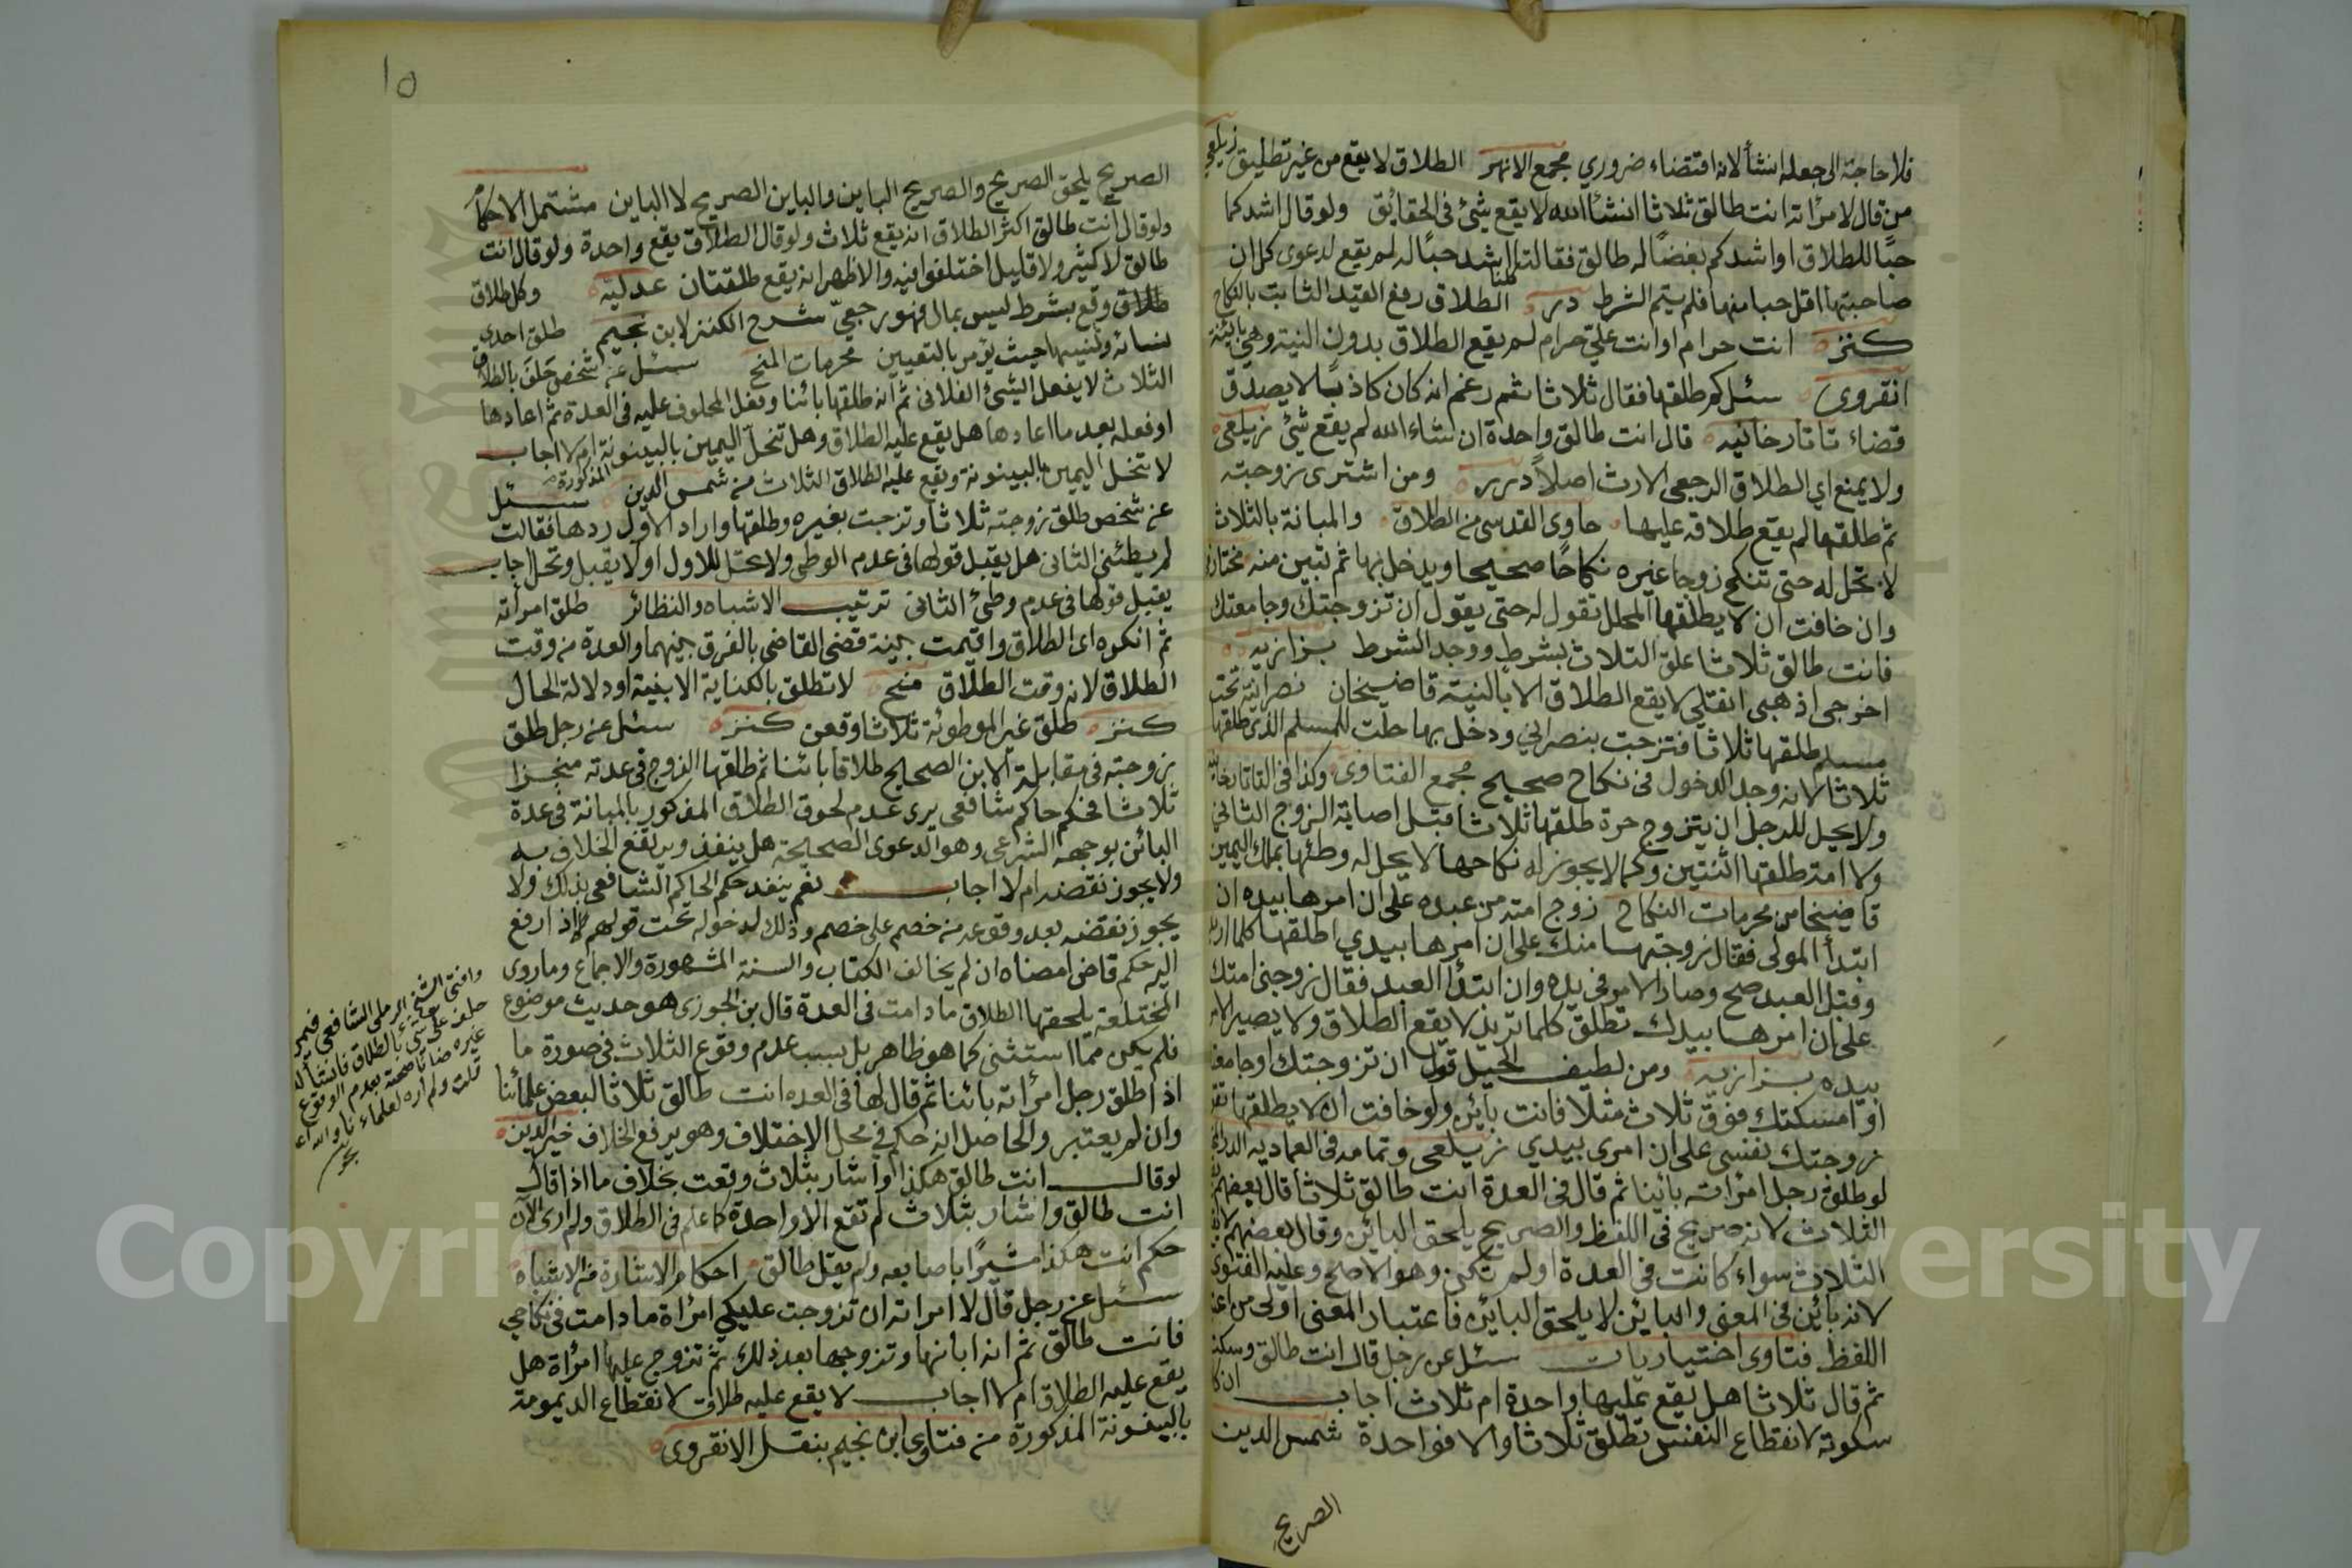 فلا حاجة الى جعله انشأ لانه اقتضاء ضروري مجمع الانهر الطلاق لا يقع من غير تطليق زيلعي
من قال لامرأته انت طالق ثلاثا انشأ الله لا يقع شئ في الحقائق ولو قال اشدكما
حبًا للطلاق او اشدكم بغضًا له طالق فقالتا انا اشد حبًا له لم يقع لدعوى كل ان
صاحبتها اقل حبا منها فلم يتم الشرط درر الطلاق رفع القيد الثابت بالنكاح
كنز انت حرام او انت علي حرام لم يقع الطلاق بدون النية وهي بائنة
انقروي سئل كم طلقها فقال ثلاثا ثم زعم انه كان كاذبا لا يصدق
قضاء تاتارخانيه قال انت طالق واحدة ان شاء الله لم يقع شئ زيلعي
ولا يمنع اي الطلاق الرجعي الارث اصلاً درر ومن اشترى زوجته
ثم طلقها لم يقع طلاقه عليها حاوى القدسى من الطلاق والمبانة بالثلاث
لا تحل له حتى تنكح زوجا غيره نكاحًا صحيحا ويدخل بها ثم تبين منه مختار
وان خافت ان لا يطلقها المحلل تقول له حتى يقول ان تزوجتك وجامعتك
فانت طالق ثلاثا علق الثلاث بشرط ووجد الشرط بزازيه
اخرجى اذهبى انتقلي لا يقع الطلاق الا بالنية قاضيخان نصرانية تحت
مسلم طلقها ثلاثا فتزجت بنصراني ودخل بها حلت للمسلم الذي طلقها
ثلاثا لانه وجد الدخول في نكاح صحيح مجمع الفتاوى وكذا في التاتارخانيه
ولا يحل للرجل ان يتزوج حرة طلقها ثلاثا قبل اصابة الزوج الثاني
ولا امة طلقها اثنتين وكما لا يجوز له نكاحها لا يحل له وطئها بملك اليمين
قاضيخان من محرمات النكاح زوج امته من عبده على ان امرها بيده ان
ابتدأ المولى فقال زوجتها منك على ان امرها بيدي اطلقها كلما اريد
وقبل العبد صح وصار الامر في يده وان ابتدأ العبد فقال زوجني امتك
على ان امرها بيدك تطلق كلما تريد لا يقع الطلاق ولا يصير الامر
بيده بزازيه ومن لطيف الحيل قول ان تزوجتك وجامعتك
او امسكتك فوق ثلاث مثلا فانت بائن ولو خافت ان لا يطلقها تقول
زوجتك نفسى على ان امرى بيدي زيلعى وتمامه في العماديه الدر
لو طلق رجل امرأته بائنا ثم قال في العدة انت طالق ثلاثا قال بعضهم
الثلاث لانه صريح في اللفظ والصريح يلحق البائن وقال بعضهم لا يقع
الثلاث سواء كانت في العدة او لم تكن وهو الاصح وعليه الفتوى
لانه بائن في المعنى والبائن لا يلحق البائن فاعتبار المعنى اولى من
اللفظ فتاوى اختياريات سئل عن رجل قال انت طالق وسكت
ثم قال ثلاثا هل يقع عليها واحدة ام ثلاث اجاب ان كان
سكوته لانقطاع النفس تطلق ثلاثا والا فواحدة شمس الدين
الصريح
١٥
الصريح يلحق الصريح والصريح الباين والباين الصريح لا الباين مشتمل الاحكام
ولو قال انت طالق اكثر الطلاق انه يقع ثلاث ولو قال الطلاق يقع واحدة ولو قال انت
طالق لا كثير ولا قليل اختلفوا فيه والاظهر انه يقع طلقتان عدليه وكل طلاق
طلاق وقع بشرط ليس بمال فهو رجعيّ شرح الكنز لابن نجيم طلق احدى
نسائه ونسيها حيث يؤمر بالتعيين محرمات المنح سئل عن شخص حلف بالطلاق
الثلاث لا يفعل الشئ الفلانى ثم انه طلقها بائنا وفعل المحلوف عليه في العدة ثم اعادها
او فعله بعد ما اعادها هل يقع عليه الطلاق وهل تنحل اليمين بالبينونة ام لا اجاب
لا تنحل اليمين بالبينونة ويقع عليه الطلاق الثلاث من شمس الدين سئل
المذكورة
عن شخص طلق زوجته ثلاثا وتزجت بغيره وطلقها واراد الاول ردها فقالت
لم يطئني الثانى هل يقبل قولها في عدم الوطى ولا تحل للاول او لا يقبل وتحل اجاب
يقبل قولها في عدم وطئ الثانى ترتيب الاشباه والنظائر طلق امرأته
ثم انكره اى الطلاق واقيمت بينة فقضى القاضى بالفرق بينهما والعدة من وقت
الطلاق لا من وقت الطلاق منح لا تطلق بالكناية الا بنية او دلالة الحال
كنز طلق غير الموطوئة ثلاثا وقعن كنز سئل عن رجل طلق
زوجته في مقابلة الابن الصحيح طلاقا بائنا ثم طلقها الزوج في عدته منجزا
ثلاثا فحكم حاكم شافعى يرى عدم لحوق الطلاق المذكور بالمبانة في عدة
البائن بوجهه الشرعى وهو الدعوى الصحيحة هل ينفذ ويرتفع الخلاف به
ولا يجوز نقضه ام لا اجاب نعم ينفد حكم الحاكم الشافعى بذلك ولا
يجوز نقضه بعد وقوعه من خصم على خصم وذلك لدخوله تحت قولهم اذ ارفع
اليه حكم قاض امضاه ان لم يخالف الكتاب والسنة المشهورة والاجماع وما روى
المختلعة يلحقها الطلاق مادامت في العدة قال بن الجوزى هو حديث موضوع
فلم يكن مما استثنى كما هو ظاهر بل بسبب عدم وقوع الثلاث في صورة ما
اذ اطلق رجل امرأته بائنا ثم قال لها في العده انت طالق ثلاثا لبعض علمائنا
وان لم يعتبر والحاصل انه حكم في محل الاختلاف وهو يرفع الخلاف خير الدين
لو قال انت طالق هكذا واشار بثلاث وقعت بخلاف ما اذا قال
انت طالق واشار بثلاث لم تقع الا واحدة كما علم في الطلاق ولم ارى الآن
حكم انت هكذا مشيرًا باصابعه ولم يقل طالق احكام الاشارة من الاشباه
سئل عن رجل قال لا امراته ان تزوجت عليكي امرأة مادامت في نكاحي
فانت طالق ثم انه ابانها وتزوجها بعد ذلك ثم تزوج عليها امرأة هل
يقع عليه الطلاق ام لا اجاب لا يقع عليه طلاق لانقطاع الديمومة
بالبينونة المذكورة من فتاوى ابن نجيم بنقل الانقروى
وافتى الشيخ الرملى الشافعى فيمن
حلف على شئ بالطلاق فانشأ له
غيره ضانا صحته بعدم الوقوع
قلت ولم اره لعلمائنا والله اعلم
بحر
Copyright © King Saud University